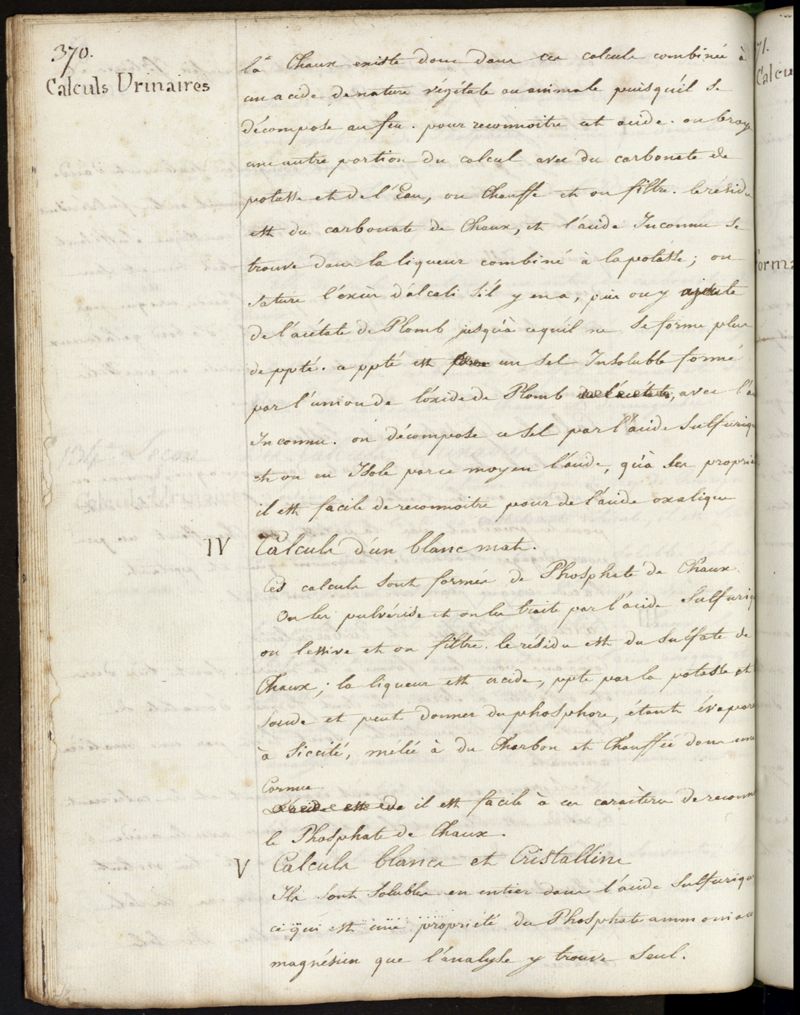 370.
Calculs Urinaires
la Chaux existe donc dans ces calculs combinée à
un acide de nature végétale ou animale puisqu'il se
décompose au feu. pour reconnoitre cet acide. on broye
une autre portion du calcul avec du carbonate de
potasse et de l'Eau, on Chauffe et on filtre. le résidu
est du carbonate de Chaux, et l'acide Inconnu se
trouve dans la liqueur combiné à la potasse; on
sature l'excès d'alcali s'il y en a, puis on y ajoute
de l'acétate de Plomb jusqu'à ce qu'il ne se forme plus
de ppté. ce ppté est un sel Insoluble formé
par l'union de l'oxide de Plomb avec l'a
Inconnu. on décompose ce sel par l'acide sulfuriq
et on en Isole par ce moyen l'acide, qu'à ses proprié
il est facile de reconnoitre pour de l'acide oxalique
IV Calculs d'un blanc mat.
Ces calculs sont formés de Phosphate de Chaux.
On les pulvérise et on les traite par l'acide Sulfuriq
on lessive et on filtre. le résidu est du sulfate de
Chaux; la liqueur est acide, ppte par la potasse et
soude et peut donner du phosphore, étant évaporé
à Siccité, mélée à du Charbon et Chauffée dans une
Cornue
il est facile à ces caractères de reconn
le Phosphate de Chaux.
V Calculs blancs et Cristallins
Ils sont solubles en entier dans l'acide sulfuriqu
ce qui est une propriété du Phosphate ammoniac
magnésien que l'analyse y trouve seul.
71.
Calcu
forma